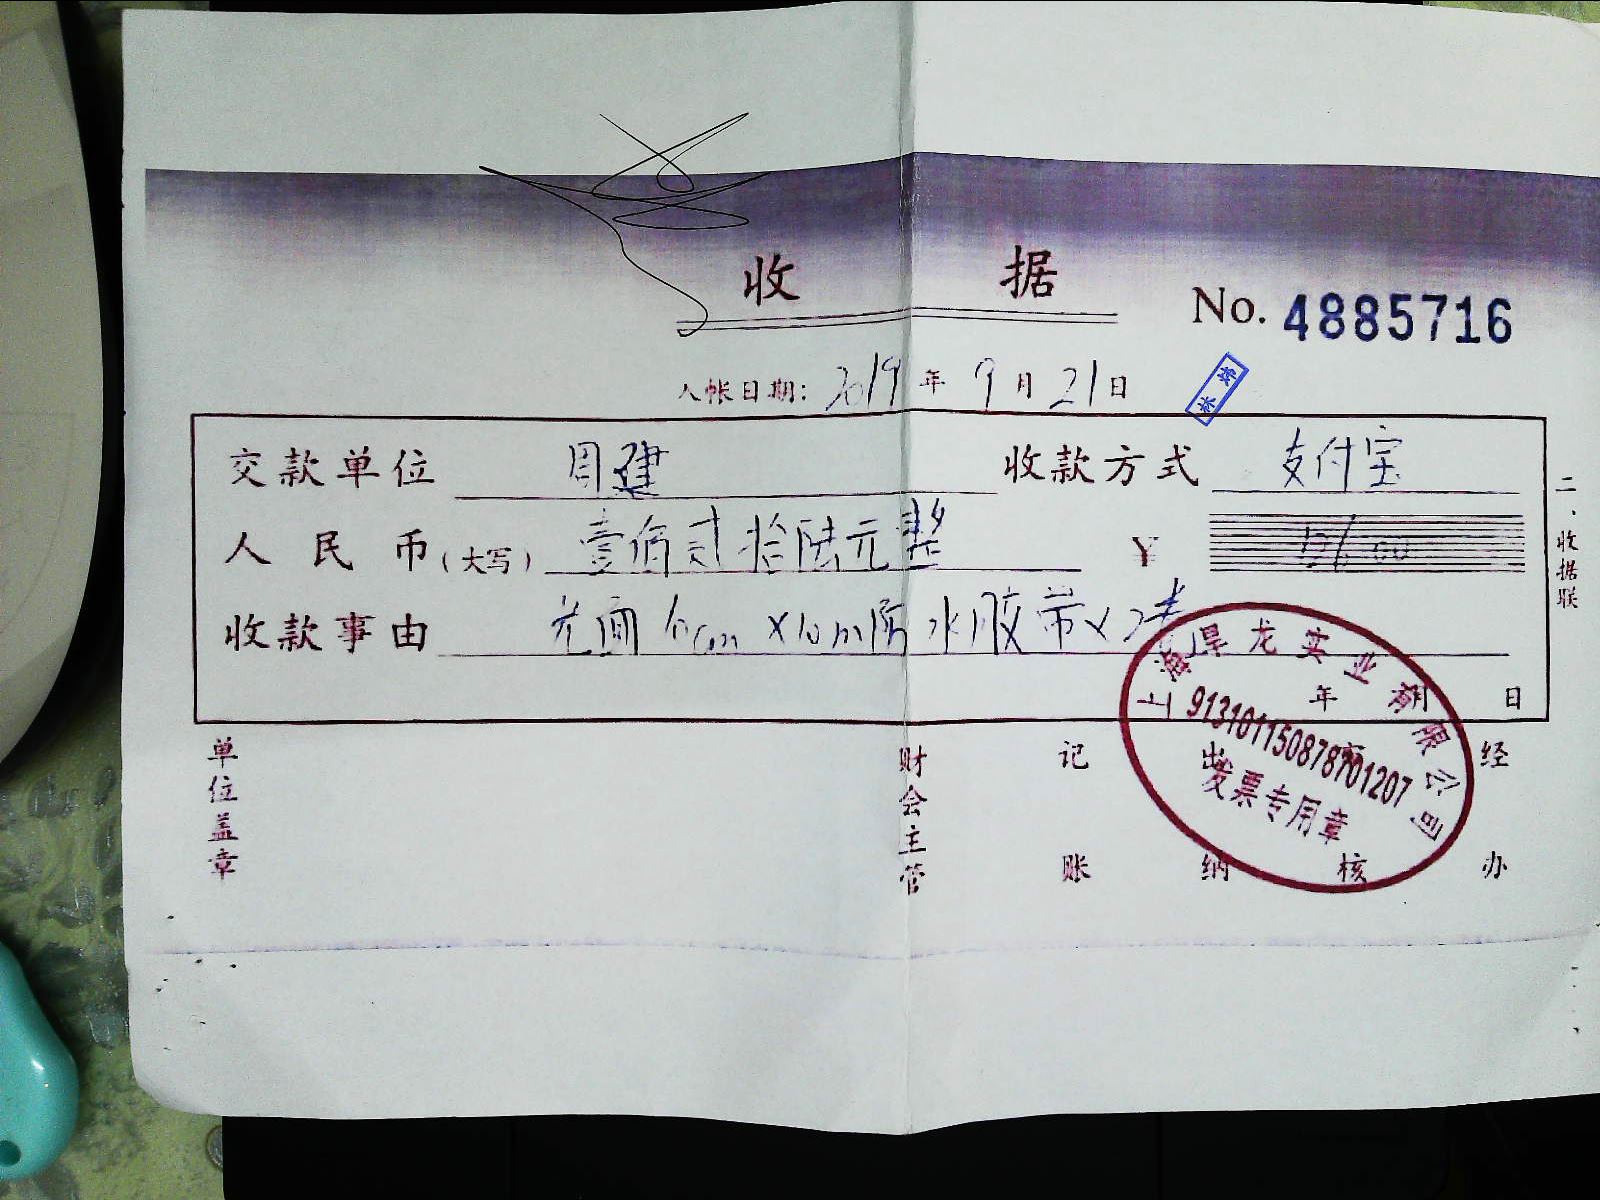 收 据
No. 4885716
入帐日期: 2019 年 9 月 21 日
交款单位 周建 收款方式 支付宝
人民币(大写) 壹佰贰拾陆元整 ¥
收款事由 光面 10m 防水胶带
年 月 日
二、收据联
单位盖章 财会主管 记账 出纳 审核 经办
上海旱龙实业有限公司
913101150878701207
发票专用章